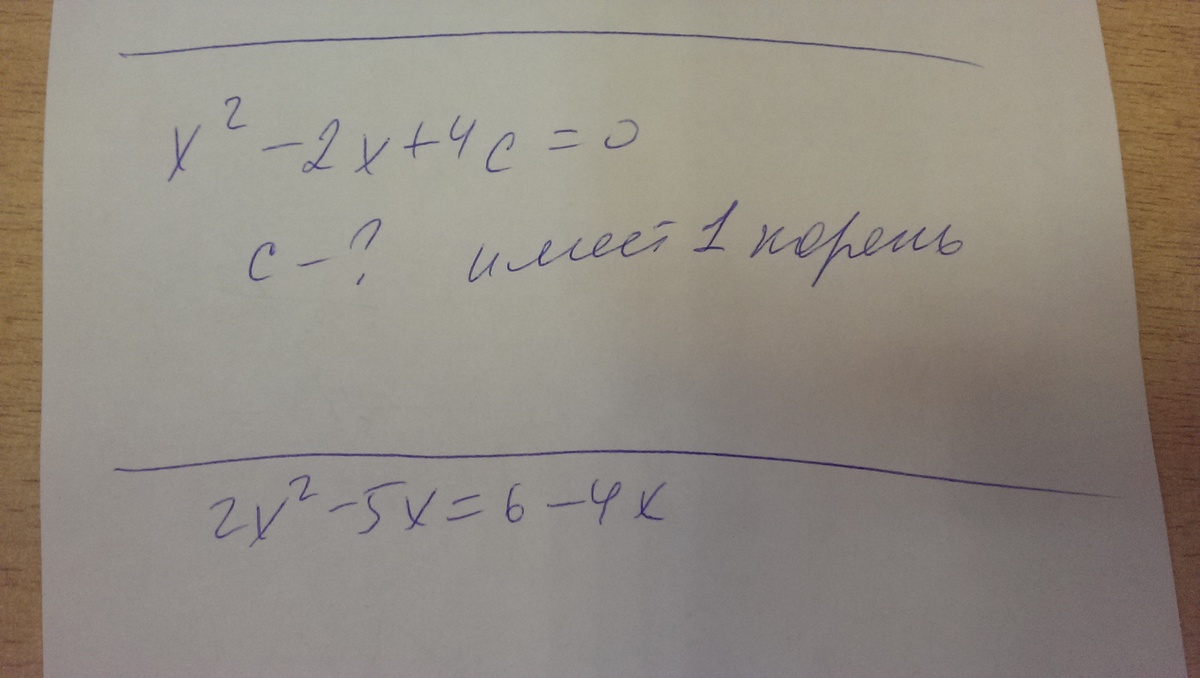 x² - 2x + 4c = 0
c - ? имеет 1 корень
2x² - 5x = 6 - 4x